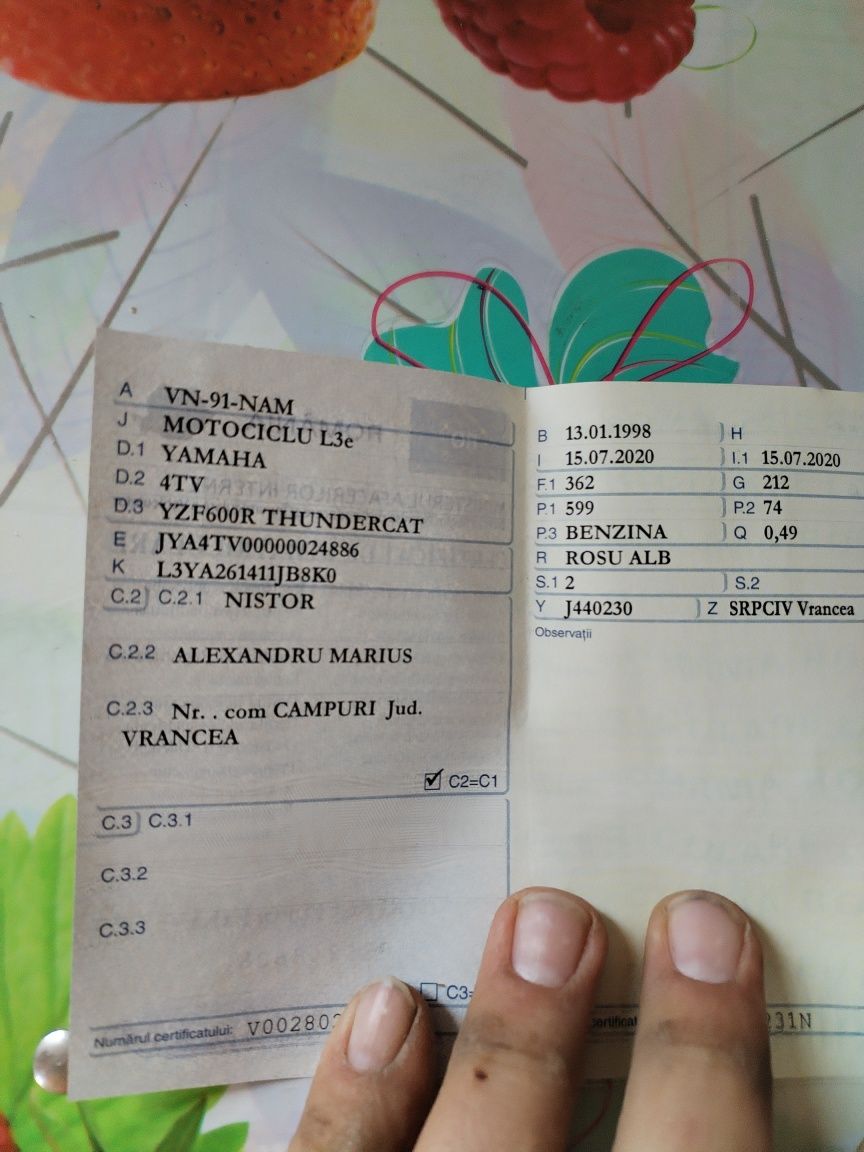 A VN-91-NAM
J MOTOCICLU L3e
D.1 YAMAHA
D.2 4TV
D.3 YZF600R THUNDERCAT
E JYA4TV00000024886
K L3YA261411JB8K0
C.2 C.2.1 NISTOR
C.2.2 ALEXANDRU MARIUS
C.2.3 Nr. . com CAMPURI Jud.
VRANCEA
C2=C1
C.3 C.3.1
C.3.2
C.3.3
C3=
Numărul certificatului: V00280
B 13.01.1998 H
I 15.07.2020 I.1 15.07.2020
F.1 362 G 212
P.1 599 P.2 74
P.3 BENZINA Q 0,49
R ROSU ALB
S.1 2 S.2
Y J440230 Z SRPCIV Vrancea
Observații
231N